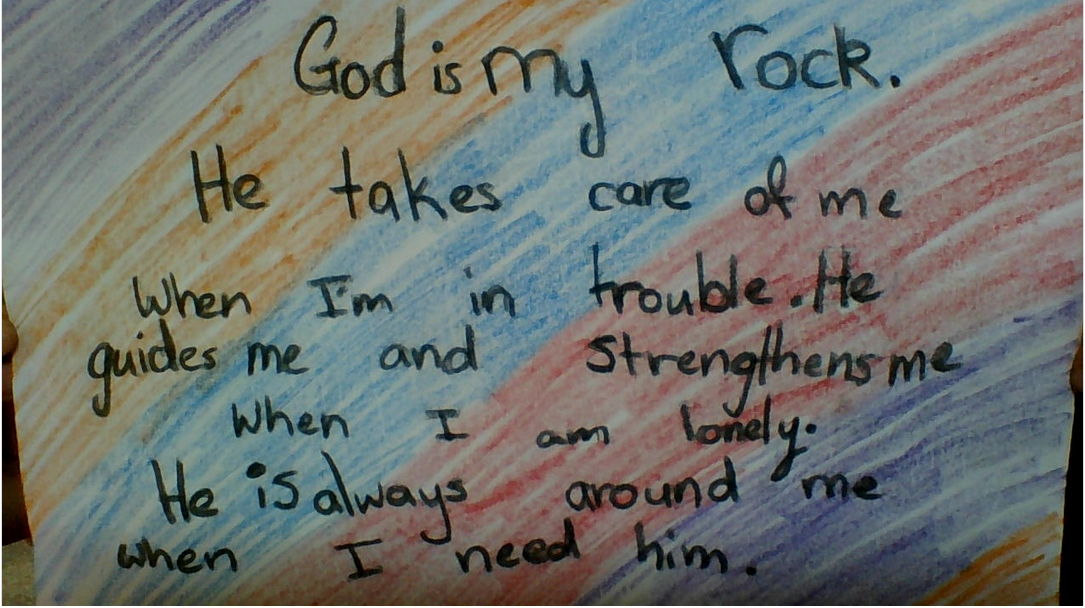 God is my rock.
He takes care of me
when I'm in trouble. He
guides me and strengthens me
when I am lonely.
He is always around me
when I need him.